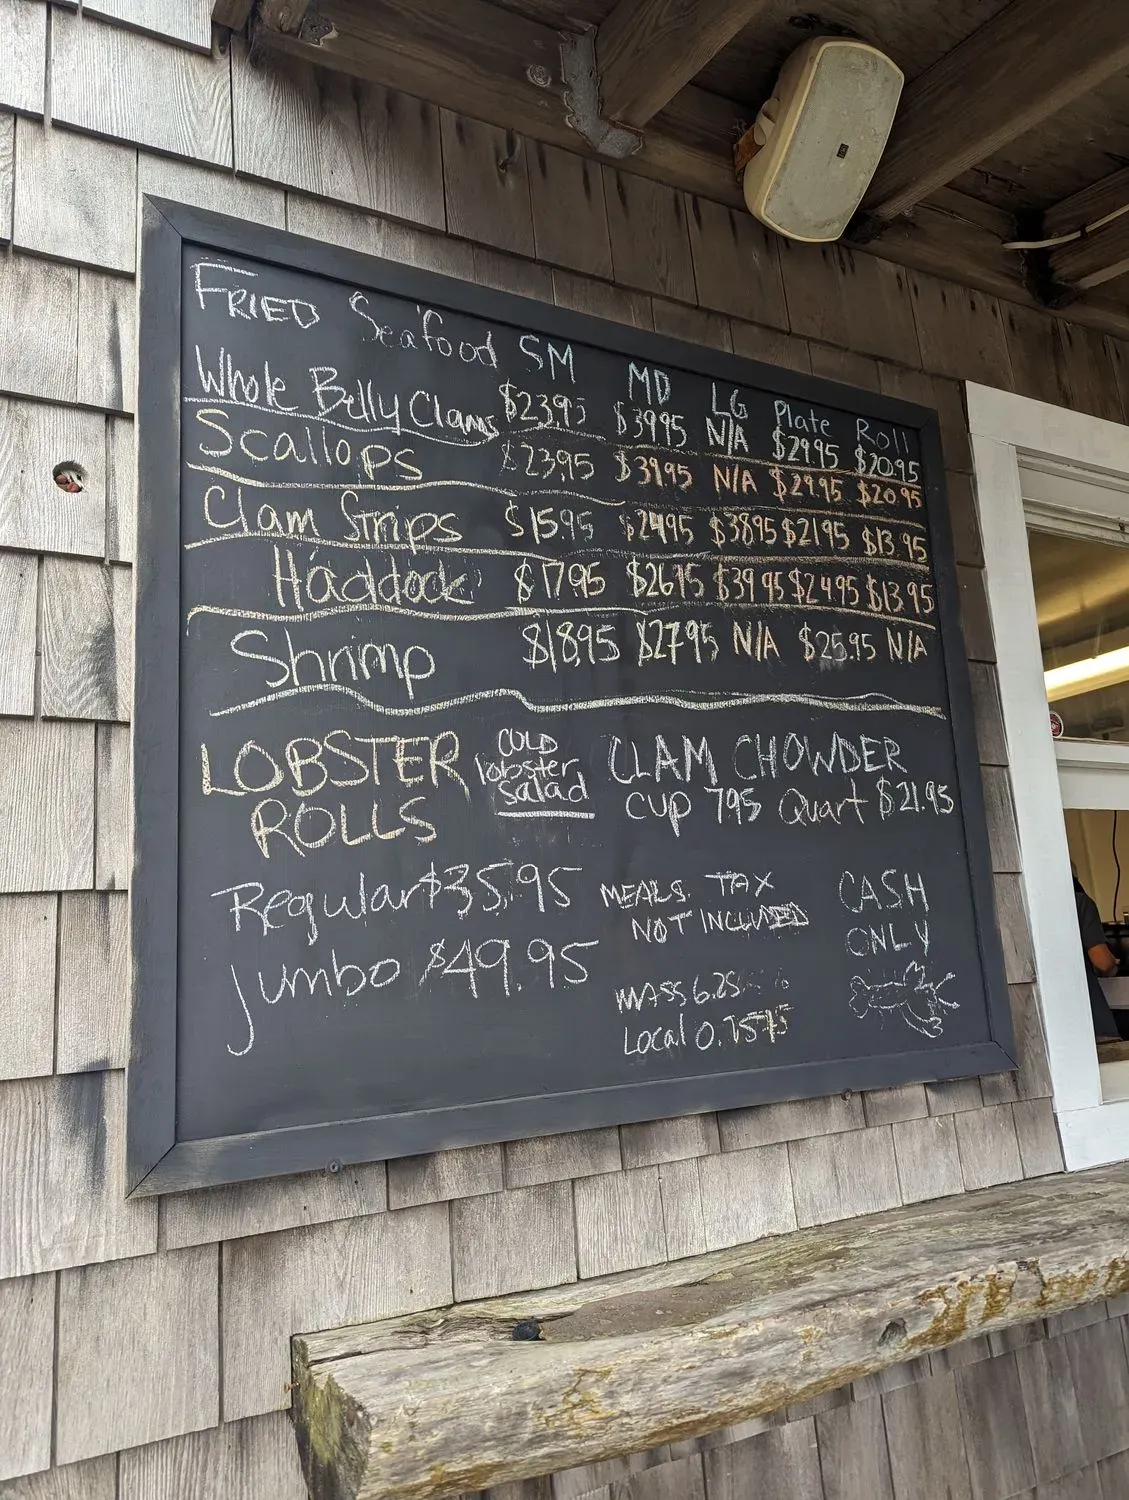 FRIED Seafood SM MD LG Plate Roll
Whole Belly Clams $23.95 $39.95 N/A $29.95 $20.95
Scallops $23.95 $39.95 N/A $29.95 $20.95
Clam Strips $15.95 $24.95 $38.95 $21.95 $13.95
Haddock $17.95 $26.75 $39.95 $24.95 $13.95
Shrimp $18.95 $27.95 N/A $25.95 N/A
LOBSTER
ROLLS
COLD
lobster
salad
Regular $35.95
Jumbo $49.95
CLAM CHOWDER
cup 7.95 Quart $21.95
MEALS TAX
NOT INCLUDED
MASS 6.25
Local 0.
CASH
ONLY